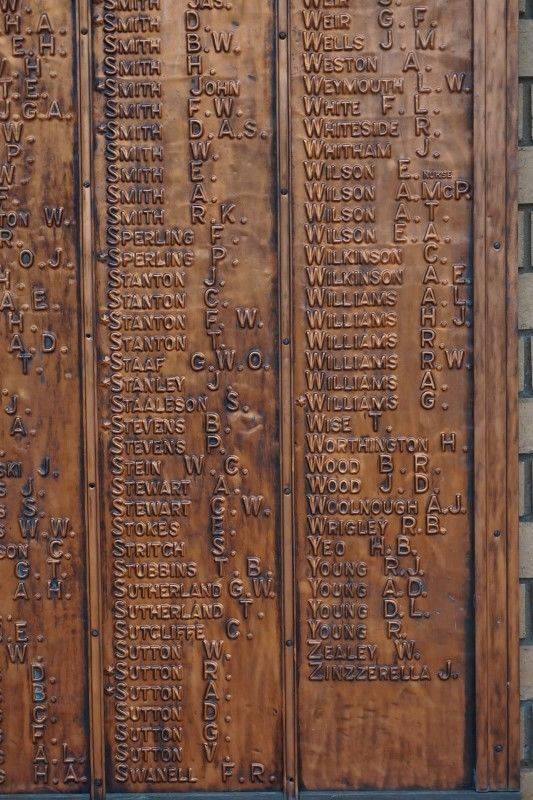 H.A.
E.H.
H.
E.
T.
J.G.A.
W.
P.
W.
F.
TON W.
R.
O.J.
H.
A.E.
H.
A.D.
T.
J.
A.
SKI J.
S J.
S S.
S W.W.
SON C.
G.T.
A.H.
E.
W.
D.
B.
C.
F.
A.L.
S H.A.
SMITH JAS.
SMITH D.
SMITH B.W.
SMITH H.
SMITH JOHN
SMITH F.W.
*SMITH D.A.S.
SMITH W.
SMITH E.
SMITH A.
SMITH R.K.
SPERLING F.
*SPERLING P.
STANTON J.
STANTON C.
*STANTON F.W.
STANTON T.
*STAAF G.W.O.
*STANLEY J.
STAALESON S.
*STEVENS B.
STEVENS P.
STEIN W.C.
STEWART A.
STEWART C.W.
STOKES E.
STRITCH S.
STUBBINS T.B.
SUTHERLAND G.W.
SUTHERLAND T.
SUTCLIFFE C.
SUTTON W.
*SUTTON R.
*SUTTON A.
SUTTON D.
SUTTON G.
SUTTON V.
SWANELL F.R.
WEIR S.
WEIR G.F.
WELLS J.M.
WESTON A.
WEYMOUTH L.W.
WHITE F.L.
WHITESIDE R.
WHITHAM J.
WILSON E. NURSE
WILSON A.McP.
WILSON A.T.
WILSON E.A.
WILKINSON C.
WILKINSON A.E.
WILLIAMS A.L.
WILLIAMS H.J.
WILLIAMS R.
WILLIAMS R.W.
WILLIAMS A.
*WILLIAMS G.
WISE T.
WORTHINGTON H.
WOOD B.R.
WOOD J.D.
WOOLNOUGH A.J.
WRIGLEY R.B.
YEO H.B.
YOUNG R.J.
YOUNG A.D.
YOUNG D.L.
YOUNG R.
ZEALEY W.
ZINZZERELLA J.